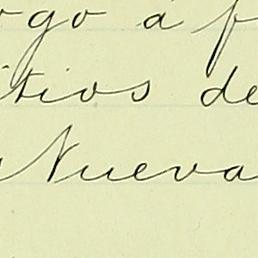 ogo á f
itios de
Nueva